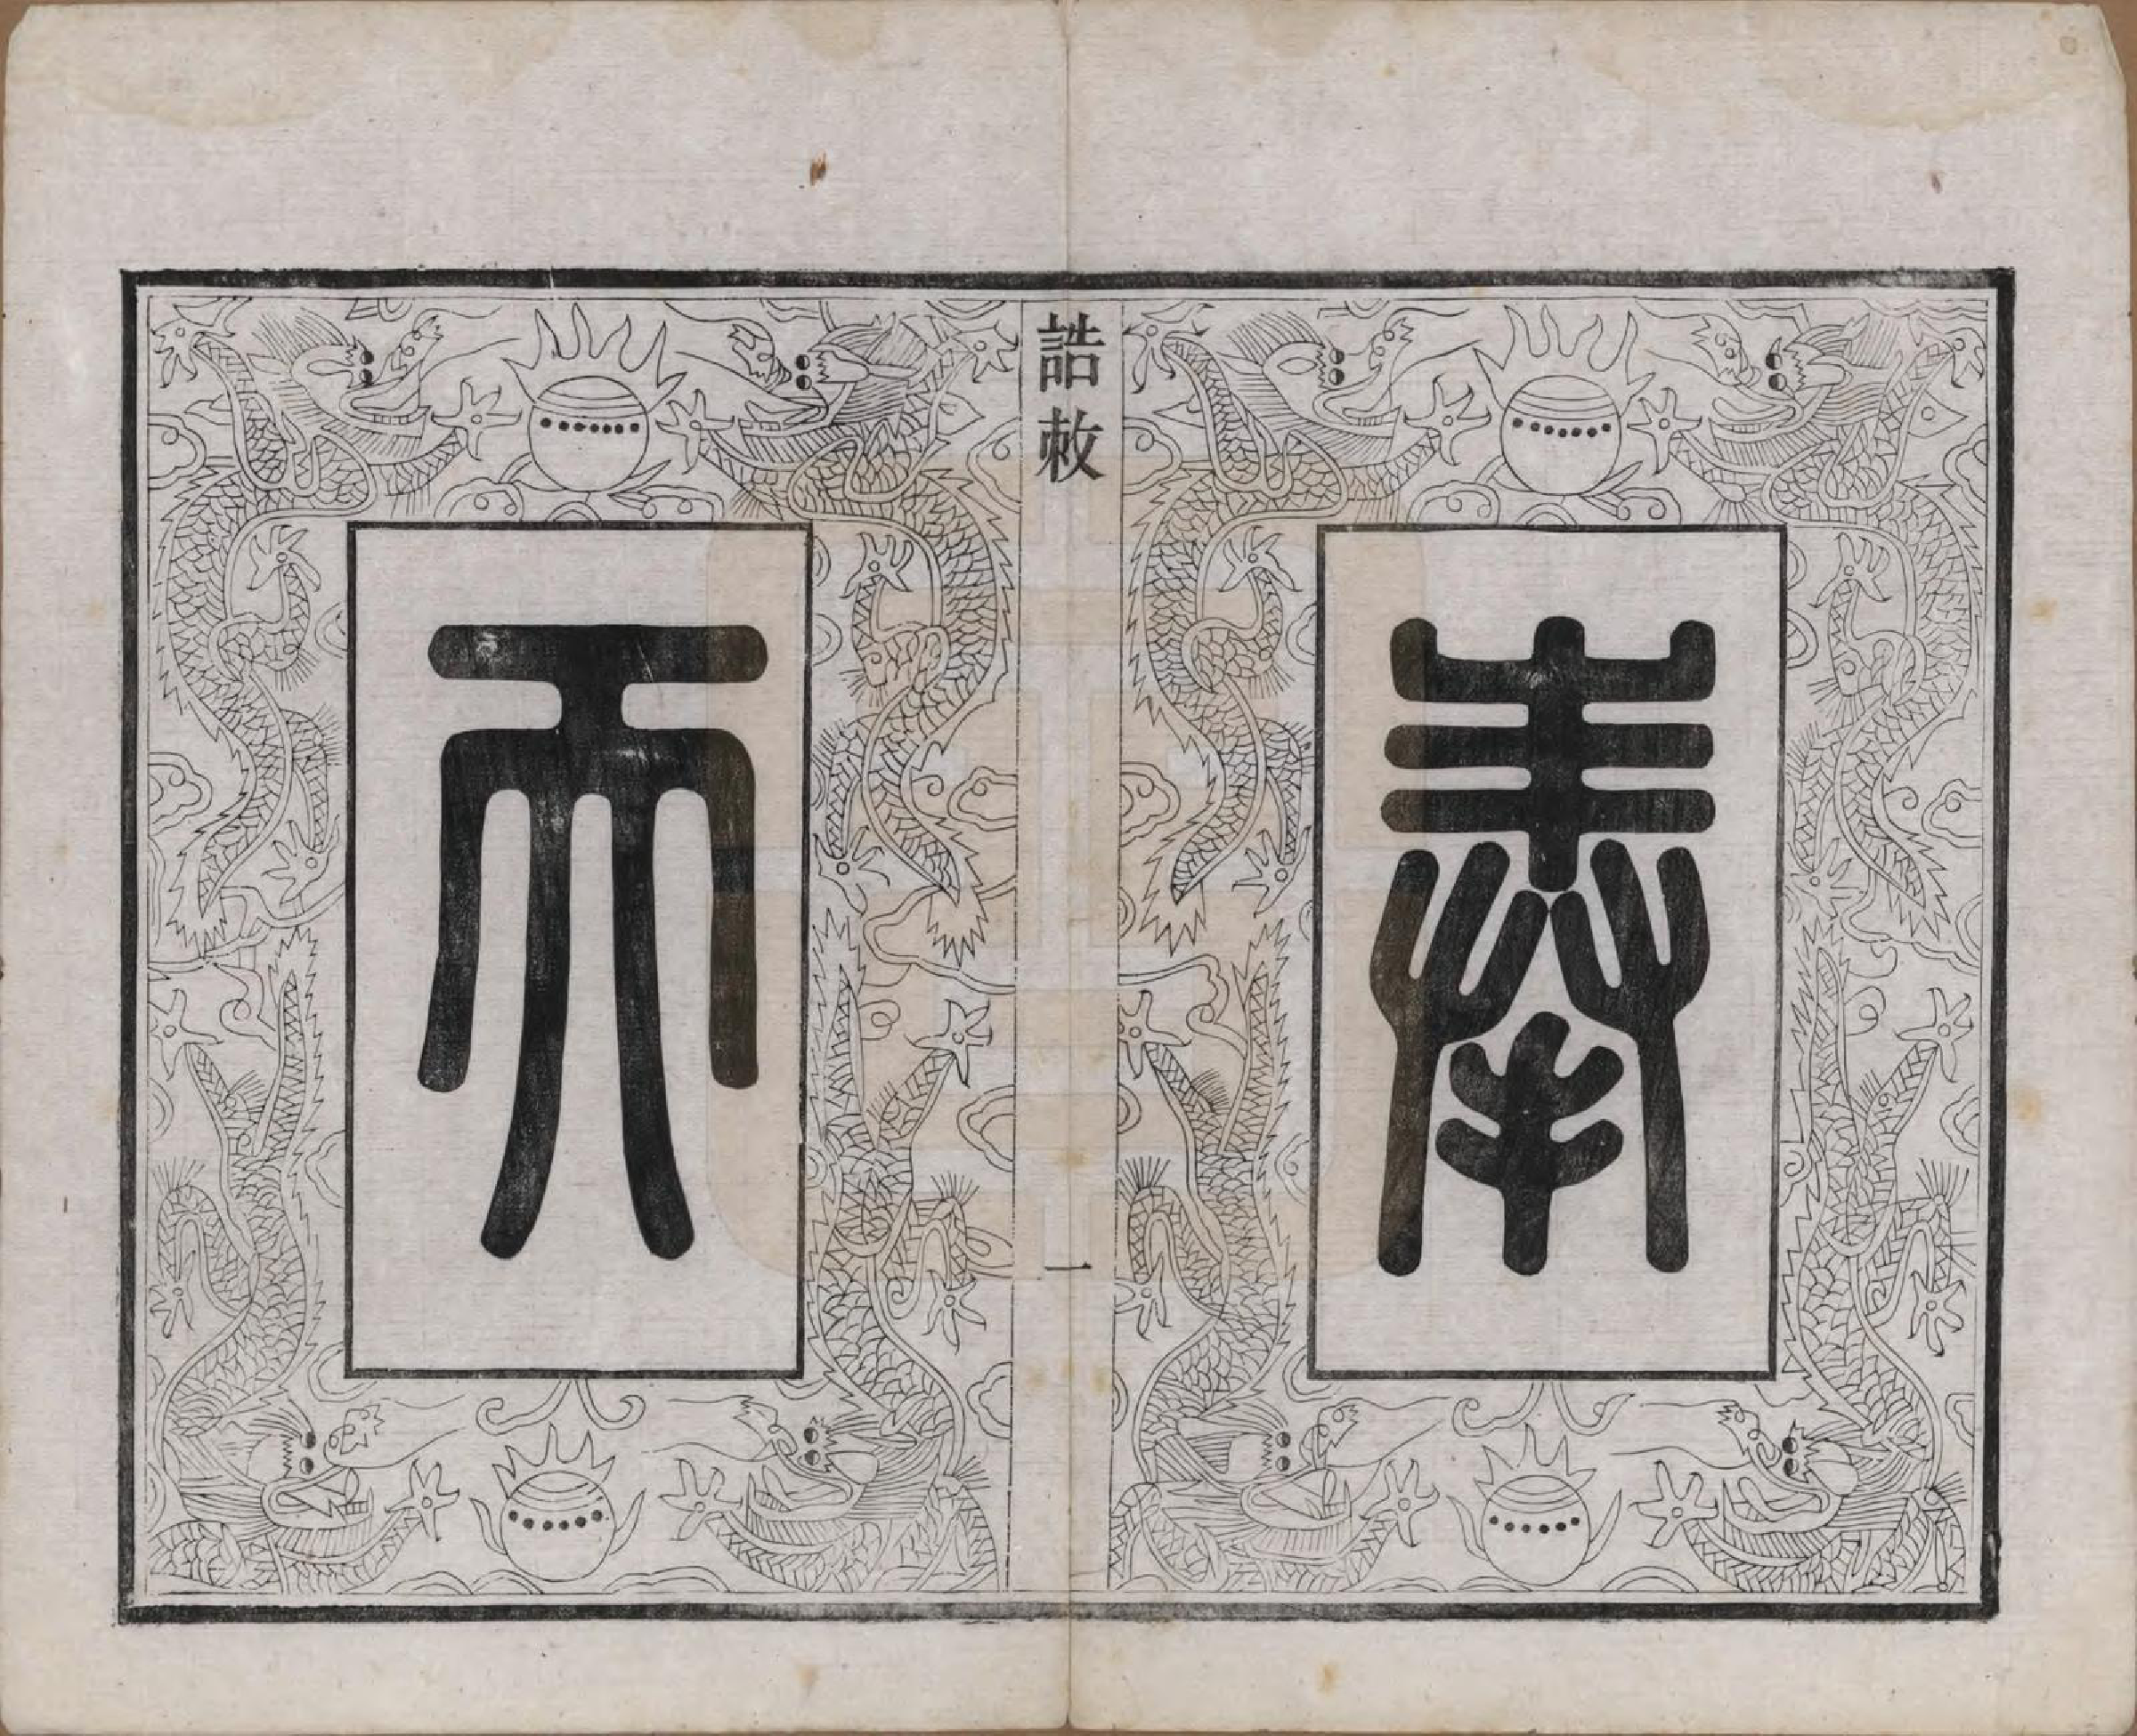 奉
誥敕
一
天